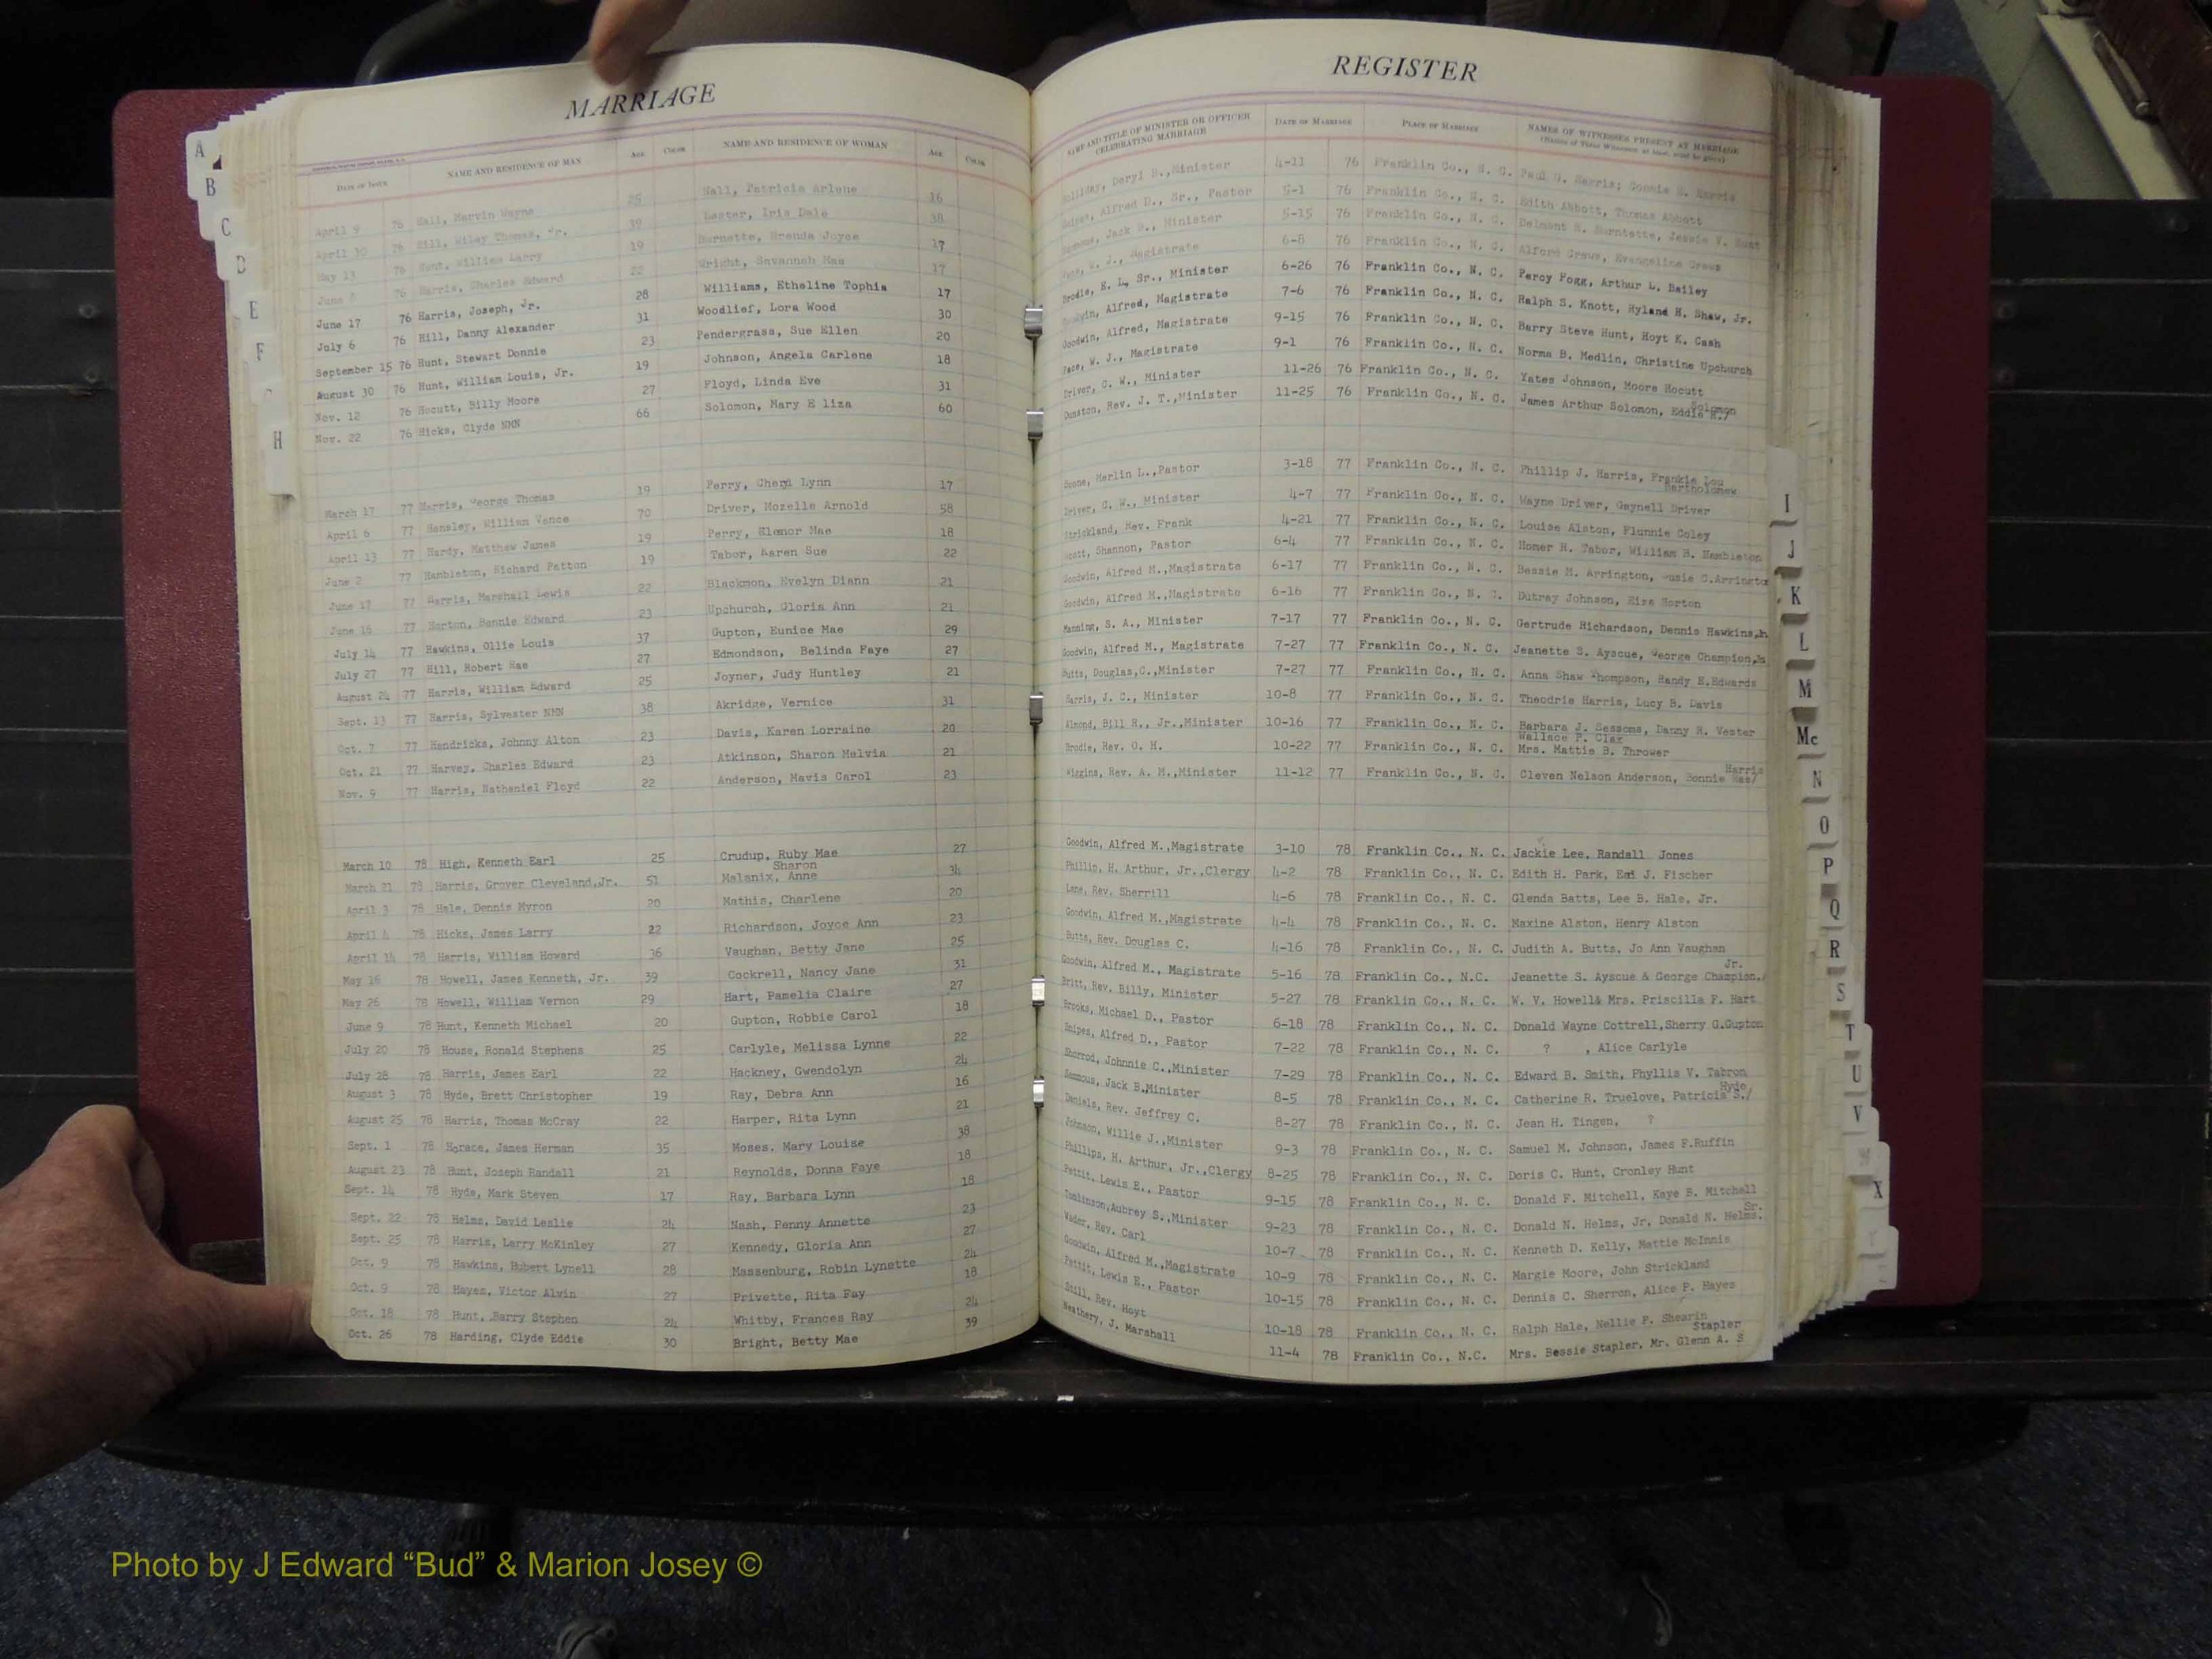 MARRIAGE
DATE OF ISSUE NAME AND RESIDENCE OF MAN AGE COLOR NAME AND RESIDENCE OF WOMAN AGE COLOR
April 9 76 Hall, Marvin Wayne 25 Hall, Patricia Arlene 16
April 30 76 Hill, Wiley Thomas, Jr. 39 Lester, Iris Dale 38
May 13 76 Hunt, William Larry 19 Burnette, Brenda Joyce 17
June 8 76 Harris, Charles Edward 22 Wright, Savannah Mae 17
June 17 76 Harris, Joseph, Jr. 28 Williams, Etheline Tophia 17
July 6 76 Hill, Danny Alexander 31 Woodlief, Lora Wood 30
September 15 76 Hunt, Stewart Donnie 23 Pendergrass, Sue Ellen 20
August 30 76 Hunt, William Louis, Jr. 19 Johnson, Angela Carlene 18
Nov. 12 76 Hocutt, Billy Moore 27 Floyd, Linda Eve 31
Nov. 22 76 Hicks, Clyde NMN 66 Solomon, Mary E liza 60
March 17 77 Harris, George Thomas 19 Perry, Cheryl Lynn 17
April 6 77 Hensley, William Vance 70 Driver, Mozelle Arnold 58
April 13 77 Hardy, Matthew James 19 Perry, Elenor Mae 18
June 2 77 Hambleton, Richard Patton 19 Tabor, Karen Sue 22
June 17 77 Harris, Marshall Lewis 22 Blackmon, Evelyn Diann 21
June 16 77 Horton, Bennie Edward 23 Upchurch, Gloria Ann 21
July 14 77 Hawkins, Ollie Louis 37 Gupton, Eunice Mae 29
July 27 77 Hill, Robert Rae 27 Edmondson, Belinda Faye 27
August 24 77 Harris, William Edward 25 Joyner, Judy Huntley 21
Sept. 13 77 Harris, Sylvester NMN 38 Akridge, Vernice 31
Oct. 7 77 Hendricks, Johnny Alton 23 Davis, Karen Lorraine 20
Oct. 21 77 Harvey, Charles Edward 23 Atkinson, Sharon Melvia 21
Nov. 9 77 Harris, Nathaniel Floyd 22 Anderson, Mavis Carol 23
March 10 78 High, Kenneth Earl 25 Crudup, Ruby Mae 27
Sharon
March 21 78 Harris, Grover Cleveland,Jr. 51 Malanix, Anne 34
April 3 78 Hale, Dennis Myron 20 Mathis, Charlene 20
April 4 78 Hicks, James Larry 22 Richardson, Joyce Ann 23
April 14 78 Harris, William Howard 36 Vaughan, Betty Jane 25
May 16 78 Howell, James Kenneth, Jr. 39 Cockrell, Nancy Jane 31
May 26 78 Howell, William Vernon 29 Hart, Pamelia Claire 27
June 9 78 Hunt, Kenneth Michael 20 Gupton, Robbie Carol 18
July 20 78 House, Ronald Stephens 25 Carlyle, Melissa Lynne 22
July 28 78 Harris, James Earl 22 Hackney, Gwendolyn 24
August 3 78 Hyde, Brett Christopher 19 Ray, Debra Ann 16
August 25 78 Harris, Thomas McCray 22 Harper, Rita Lynn 21
Sept. 1 78 Horace, James Herman 35 Moses. Mary Louise 38
August 23 78 Hunt, Joseph Randall 21 Reynolds, Donna Faye 18
Sept. 14 78 Hyde, Mark Steven 17 Ray, Barbara Lynn 18
Sept. 22 78 Helms, David Leslie 24 Nash, Penny Annette 23
Sept. 25 78 Harris, Larry McKinley 27 Kennedy, Gloria Ann 27
Oct. 9 78 Hawkins, Hubert Lynell 28 Massenburg, Robin Lynette 24
Oct. 9 78 Hayes, Victor Alvin 27 Privette, Rita Fay 18
Oct. 18 78 Hunt, Barry Stephen 24 Whitby, Frances Ray 24
Oct. 26 78 Harding, Clyde Eddie 30 Bright, Betty Mae 39
REGISTER
NAME AND TITLE OF MINISTER OR OFFICER CELEBRATING MARRIAGE DATE OF MARRIAGE PLACE OF MARRIAGE NAMES OF WITNESSES PRESENT AT MARRIAGE
(Names of Three Witnesses, at least, must be given)
Holliday, Deryl H.,Minister 4-11 76 Franklin Co., N. C. Paul G. Harris; Connie S. Harris
Alfred D., Sr., Pastor 5-1 76 Franklin Co., N. C. Edith Abbott, Thomas Abbott
Sammous, Jack B., Minister 5-15 76 Franklin Co., N. C. Delmont R. Burntette, Jessie V. Hunt
Pace, W. J., Magistrate 6-8 76 Franklin Co., N. C. Alford Crews, Evangeline Crews
Brodie, E. L, Sr., Minister 6-26 76 Franklin Co., N. C. Percy Fogg, Arthur L. Bailey
Goodwin, Alfred, Magistrate 7-6 76 Franklin Co., N. C. Ralph S. Knott, Hyland H. Shaw, Jr.
Goodwin, Alfred, Magistrate 9-15 76 Franklin Co., N. C. Barry Steve Hunt, Hoyt K. Cash
Pace, W. J., Magistrate 9-1 76 Franklin Co., N. C. Norma B. Medlin, Christine Upchurch
Driver, C. W., Minister 11-26 76 Franklin Co., N. C. Yates Johnson, Moore Hocutt
Dunston, Rev. J. T.,Minister 11-25 76 Franklin Co., N. C. James Arthur Solomon, Eddie R./ Solomon
Boone, Merlin L.,Pastor 3-18 77 Franklin Co., N. C. Phillip J. Harris, Frankie Lou
Bartholomew
Driver, C. W., Minister 4-7 77 Franklin Co., N. C. Wayne Driver, Gaynell Driver
Strickland, Rev. Frank 4-21 77 Franklin Co., N. C. Louise Alston, Flunnie Coley
Scott, Shannon, Pastor 6-4 77 Franklin Co., N. C. Homer H. Tabor, William B. Hambleton
Goodwin, Alfred M.,Magistrate 6-17 77 Franklin Co., N. C. Bessie M. Arrington, Susie C.Arringto
Goodwin, Alfred M.,Magistrate 6-16 77 Franklin Co., N. C. Dutray Johnson, Eiza Horton
Manning, S. A., Minister 7-17 77 Franklin Co., N. C. Gertrude Richardson, Dennis Hawkins,
Goodwin, Alfred M., Magistrate 7-27 77 Franklin Co., N. C. Jeanette S. Ayscue, George Champion,
Butts, Douglas,C.,Minister 7-27 77 Franklin Co., N. C. Anna Shaw Thompson, Randy E.Edwards
Harris, J. C., Minister 10-8 77 Franklin Co., N. C. Theodrie Harris, Lucy B. Davis
Almond, Bill R., Jr.,Minister 10-16 77 Franklin Co., N. C. Barbara J. Sessoms, Danny R. Vester
Wallace P. Clax
Brodie, Rev. O. H. 10-22 77 Franklin Co., N. C. Mrs. Mattie B. Thrower
Wiggins, Rev. A. M.,Minister 11-12 77 Franklin Co., N. C. Cleven Nelson Anderson, Bonnie Mae/ Harris
Goodwin, Alfred M.,Magistrate 3-10 78 Franklin Co., N. C. Jackie Lee, Randall Jones
Phillip, H. Arthur, Jr.,Clergy 4-2 78 Franklin Co., N. C. Edith H. Park, J. Fischer
Lane, Rev. Sherrill 4-6 78 Franklin Co., N. C. Glenda Batts, Lee B. Hale, Jr.
Goodwin, Alfred M.,Magistrate 4-4 78 Franklin Co., N. C. Maxine Alston, Henry Alston
Butts, Rev. Douglas C. 4-16 78 Franklin Co., N. C. Judith A. Butts, Jo Ann Vaughan
Jr.
Goodwin, Alfred M., Magistrate 5-16 78 Franklin Co., N.C. Jeanette S. Ayscue & George Champion./
Britt, Rev. Billy, Minister 5-27 78 Franklin Co., N. C. W. V. Howell& Mrs. Priscilla F. Hart
Brooks, Michael D., Pastor 6-18 78 Franklin Co., N. C. Donald Wayne Cottrell,Sherry G.Gupton
Snipes, Alfred D., Pastor 7-22 78 Franklin Co., N. C. ? , Alice Carlyle
Sherrod, Johnnie C.,Minister 7-29 78 Franklin Co., N. C. Edward B. Smith, Phyllis V. Tabron
Hyde
Sammous, Jack B.Minister 8-5 78 Franklin Co., N. C. Catherine R. Truelove, Patricia S./
Daniels, Rev. Jeffrey C. 8-27 78 Franklin Co., N. C. Jean H. Tingen, ?
Johnson, Willie J.,Minister 9-3 78 Franklin Co., N. C. Samuel M. Johnson, James F.Ruffin
Phillips, H. Arthur, Jr.,Clergy 8-25 78 Franklin Co., N. C. Doris C. Hunt, Cronley Hunt
Pettit, Lewis E., Pastor 9-15 78 Franklin Co., N. C. Donald F. Mitchell, Kaye B. Mitchell
Sr.
Tomlinson,Aubrey S.,Minister 9-23 78 Franklin Co., N. C. Donald N. Helms, Jr. Donald N. Helms.
Wader, Rev. Carl 10-7 78 Franklin Co., N. C. Kenneth D. Kelly, Mattie McInnis
Goodwin, Alfred M.,Magistrate 10-9 78 Franklin Co., N. C. Margie Moore, John Strickland
Pettit, Lewis E., Pastor 10-15 78 Franklin Co., N. C. Dennis C. Sherron, Alice P. Hayes
Still, Rev. Hoyt 10-18 78 Franklin Co., N. C. Ralph Hale, Nellie P. Shearin
Stapler
Weathery, J. Marshall 11-4 78 Franklin Co., N.C. Mrs. Bessie Stapler, Mr. Glenn A. S
A
B
C
D
E
F
H
I
J
K
L
M
Mc
N
O
P
Q
R
S
T
U
V
W
X
Y
Photo by J Edward “Bud” & Marion Josey ©